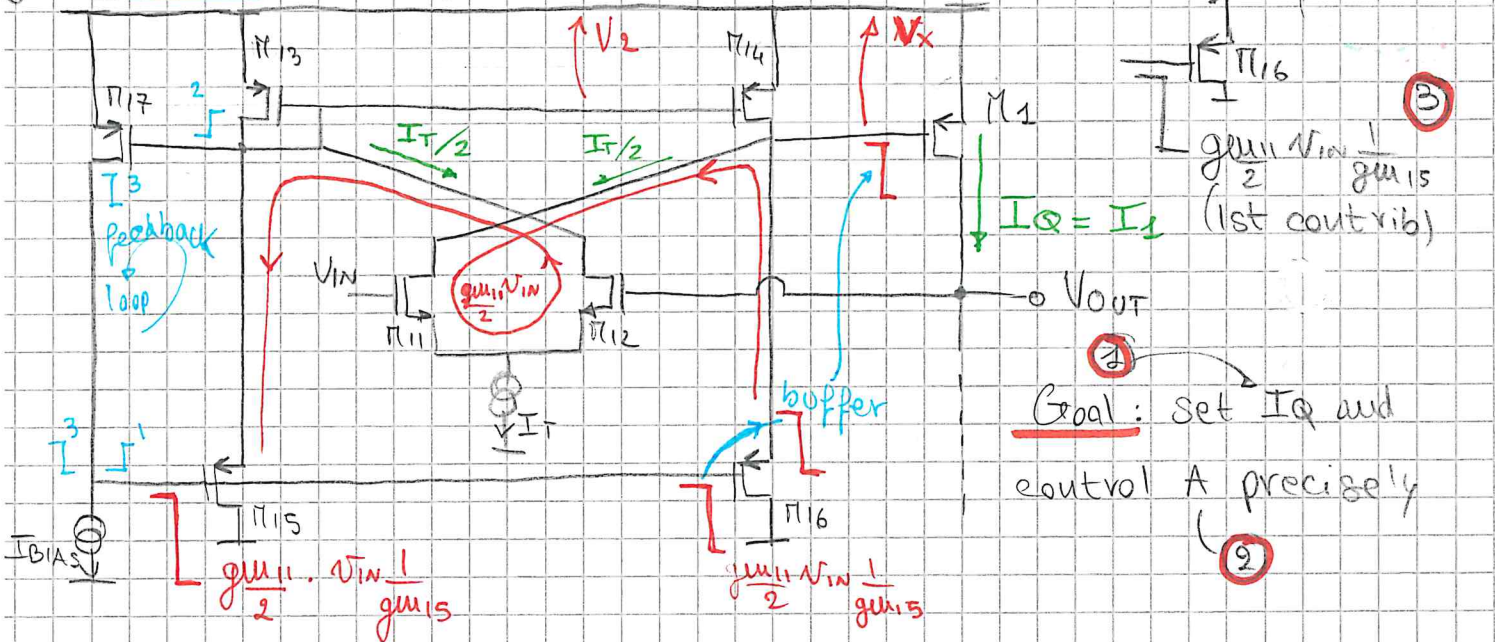 M13
V2
M14
Vx
M16
3
M17
2
M1
IT/2
IT/2
gm11/2 VIN 1/gm15
(1st contrib)
3
feedback
loop
IQ = I1
VIN
gm11/2 VIN
M11
M12
VOUT
1
IT
buffer
Goal: set IQ and
control A precisely
2
3
1
M15
M16
IBIAS
gm11/2 · VIN 1/gm15
gm11/2 VIN 1/gm15